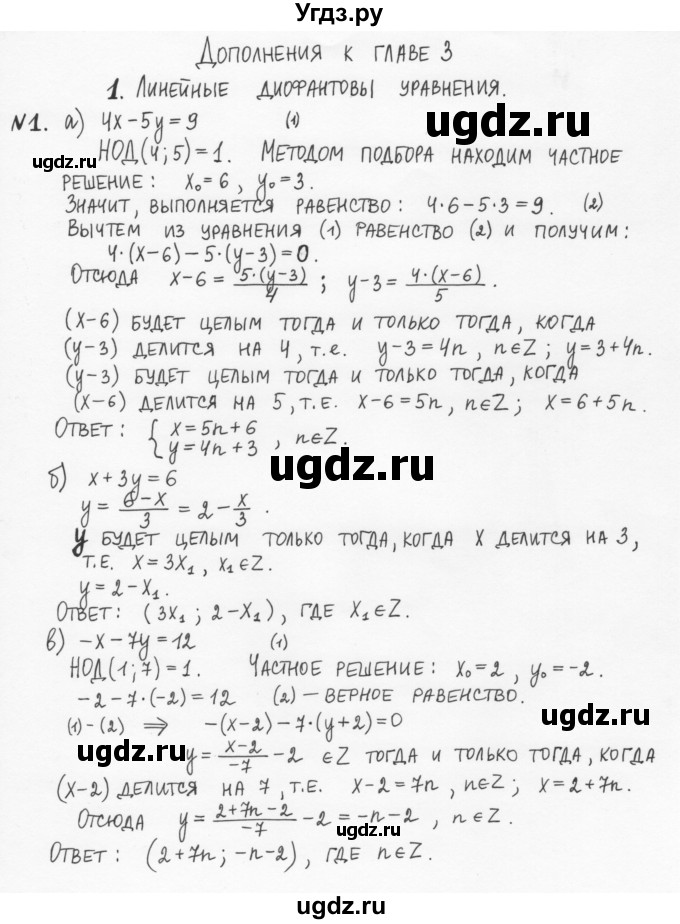 Угдз.ру
Дополнения к главе 3
1. Линейные диофантовы уравнения.
№1. а) 4x-5y=9 (1)
НОД(4;5)=1. Методом подбора находим частное
решение: x₀=6, y₀=3.
Значит, выполняется равенство: 4·6-5·3=9. (2)
Вычтем из уравнения (1) равенство (2) и получим:
4·(x-6)-5·(y-3)=0.
Отсюда x-6=5·(y-3)/4; y-3=4·(x-6)/5.
(x-6) будет целым тогда и только тогда, когда
(y-3) делится на 4, т.е. y-3=4n, n∈Z; y=3+4n.
(y-3) будет целым тогда и только тогда, когда
(x-6) делится на 5, т.е. x-6=5n, n∈Z; x=6+5n.
Ответ: { x=5n+6
y=4n+3, n∈Z.
б) x+3y=6
y=6-x/3=2-x/3.
y будет целым только тогда, когда x делится на 3,
т.е. x=3x₁, x₁∈Z.
y=2-x₁.
Ответ: (3x₁; 2-x₁), где x₁∈Z.
в) -x-7y=12 (1)
НОД(1;7)=1. Частное решение: x₀=2, y₀=-2.
-2-7·(-2)=12 (2) - верное равенство.
(1)-(2) ⇒ -(x-2)-7·(y+2)=0
y=x-2/-7-2 ∈Z тогда и только тогда, когда
(x-2) делится на 7, т.е. x-2=7n, n∈Z; x=2+7n.
Отсюда y=2+7n-2/-7-2=-n-2, n∈Z.
Ответ: (2+7n; -n-2), где n∈Z.
ugdz.ru
ugdz.ru
ugdz.ru
ugdz.ru
ugdz.ru
ugdz.ru
ugdz.ru
ugdz.ru
ugdz.ru
ugdz.ru
ugdz.ru
ugdz.ru
ugdz.ru
ugdz.ru